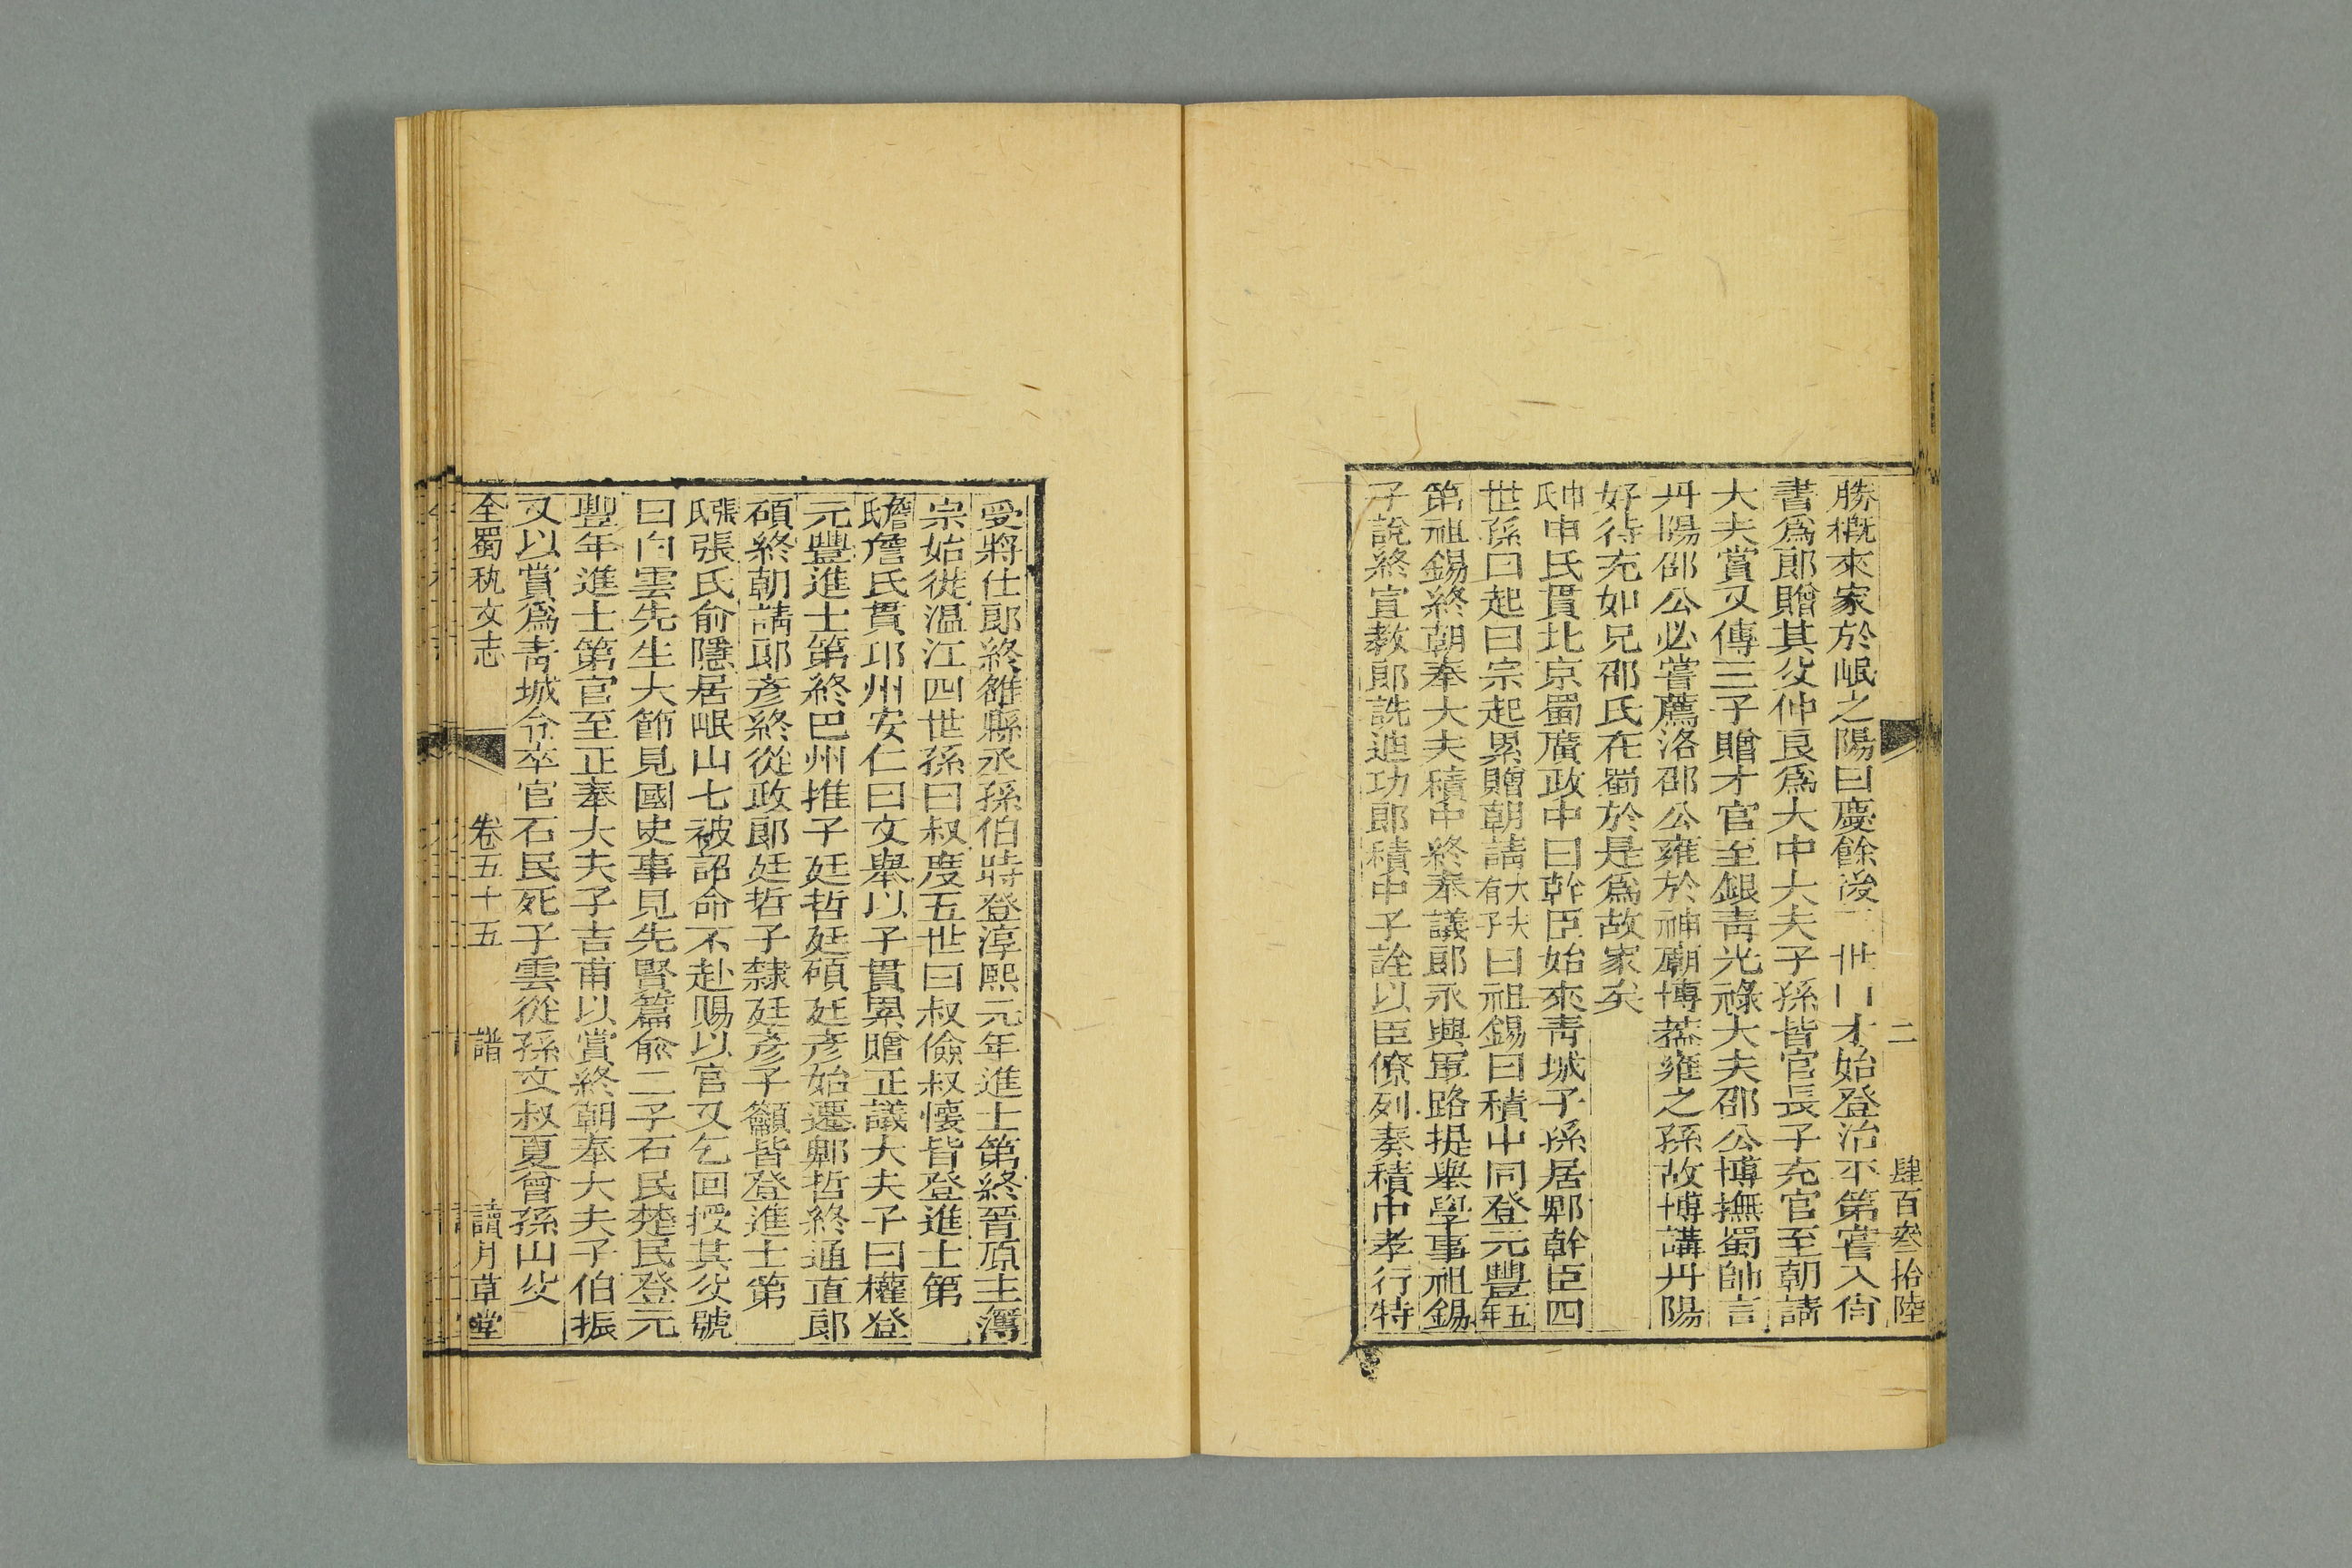 二　肆百叁拾陸
勝概來家於岷之陽曰慶餘後 世 才始登治平第嘗入尙
書爲郞贈其父仲良爲大中大夫子孫皆官長子充官至朝請
大夫賞又傳三子贈才官至銀靑光祿大夫邵公博撫蜀帥言
丹陽邵公必嘗薦洛邵公雍於神廟博葢雍之孫故博講丹陽
好待充如兄邵氏在蜀於是爲故家矣
申氏申氏貫北京蜀廣政中曰幹臣始來靑城子孫居郫幹臣四
世孫曰起曰宗起累贈朝請大夫有子曰祖錫曰積中同登元豐五年
第祖錫終朝奉大夫積中終奉議郞永興軍路提舉學事祖錫
子說終宣敎郞詵迪功郞積中子詮以臣僚列奏積中孝行特
受將仕郞終雒縣丞孫伯時登淳熙元年進士第終晉原主簿
宗始徙溫江四世孫曰叔度五世曰叔儉叔懷皆登進士第
詹氏詹氏貫邛州安仁曰文舉以子貫累贈正議大夫子曰權登
元豐進士第終巴州推子廷哲廷碩廷彥始遷郫哲終通直郞
碩終朝請郞彥終從政郞廷哲子隸廷彥子籲皆登進士第
張氏張氏俞隱居岷山七被詔命不赴賜以官又乞回授其父號
曰白雲先生大節見國史事見先賢篇俞二子石民楚民登元
豐年進士第官至正奉大夫子吉甫以賞終朝奉大夫子伯振
又以賞爲靑城令卒官石民死子雲從孫文叔夏曾孫山父
全蜀秇文志　卷五十五　譜　讀月草堂